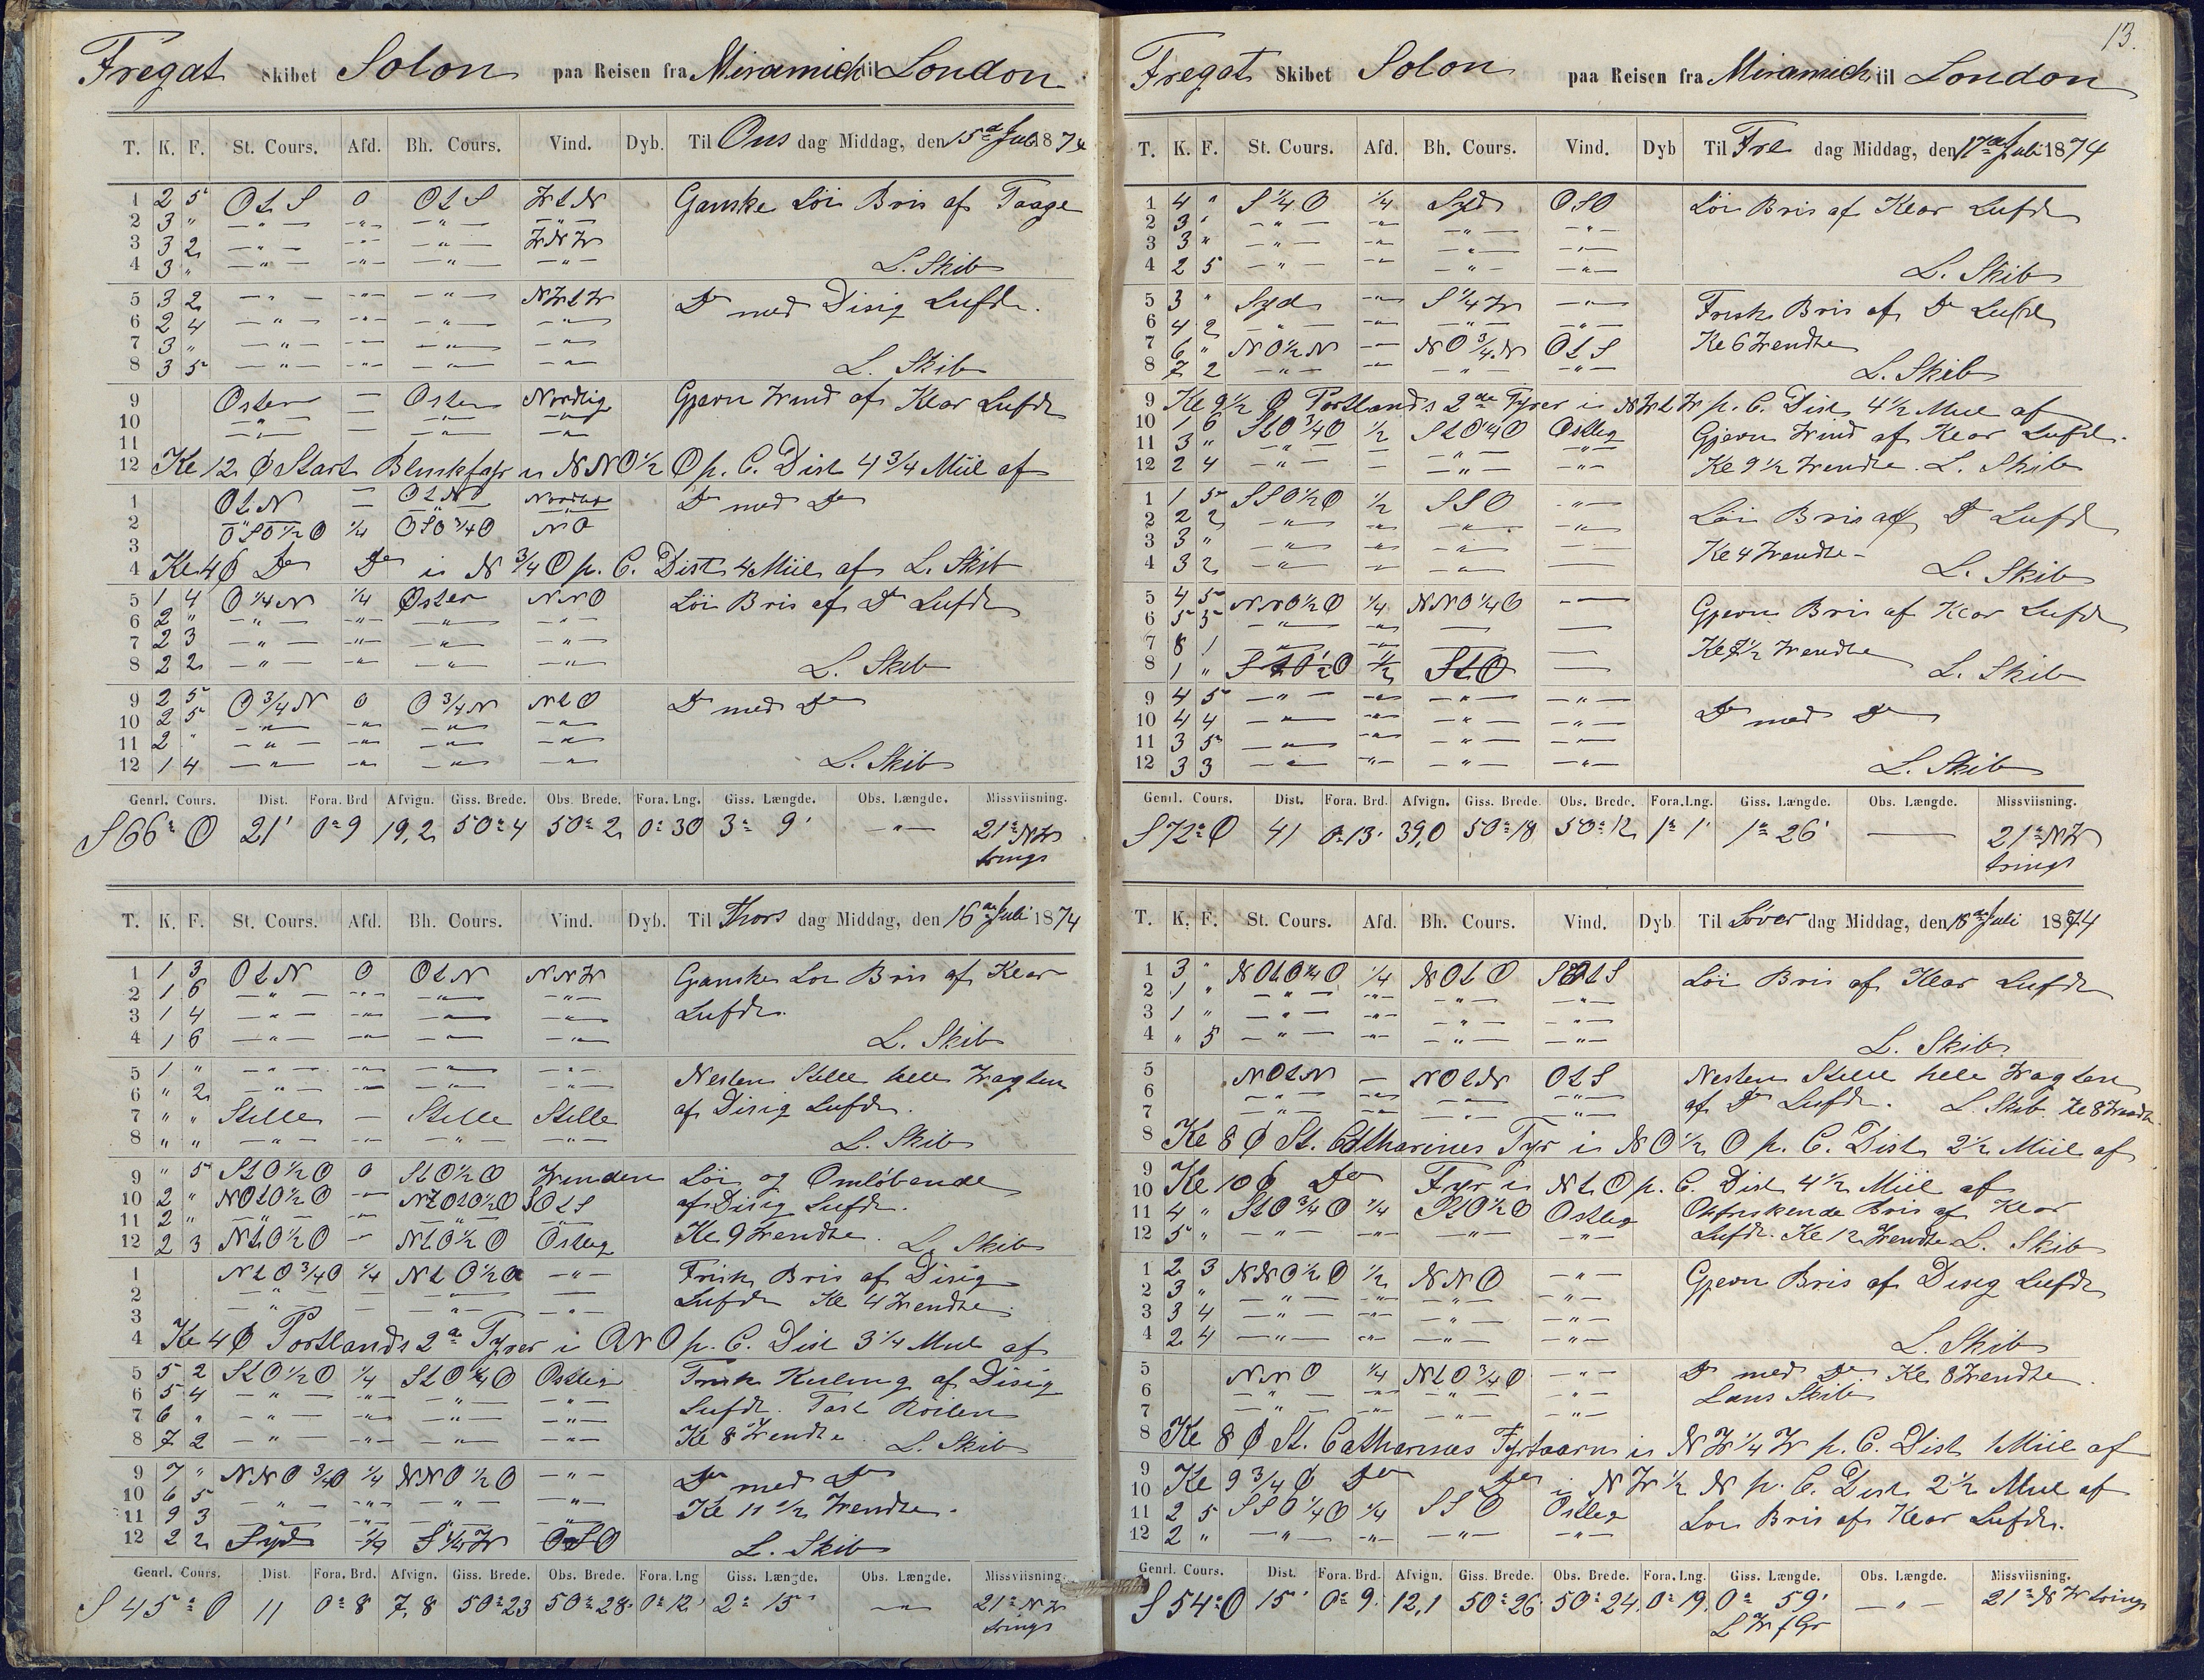 Fregat Skibet Solon paa Reisen fra Miramich til London
T. K. F. St. Cours. Afd. Bh. Cours. Vind. Dyb. Til Ons dag Middag, den 15de Juli 1874
1 2 5 OtS 0 OtS WtN Ganske Löi Bris af Taage
2 3 " — " — — " — — " — — " —
3 3 2 — " — — " — — " — WNW
4 3 " — " — — " — — " — — " — L. Skib
5 3 2 — " — — " — — " — NWtW Do med Disig Lufdt.
6 2 4 — " — — " — — " — — " —
7 3 " — " — — " — — " — — " —
8 3 5 — " — — " — — " — — " — L. Skib
9 Osten — Osten Nordlig Gjævn Wind af Klar Lufdt
10 — " — — — " — — " —
11 — " — — — " — — " —
12 Kl 12 Ø Start Blinkfyr i NNO½O p. C. Dist 4¾ Miil af
1 OtN — OtN Nordlig Do med Do
2 — " — — — " — — " —
3 OSO½O ¼ OSO¾O NO
4 Kl 4 Ø Do Do i N¾O p. C. Dist 4 Miil af L. Skib
5 1 4 O¼N ¼ Øster NNO Löi Bris af Do Lufdt
6 2 " — " — — " — — " — — " —
7 2 3 — " — — " — — " — — " —
8 2 2 — " — — " — — " — — " — L. Skib
9 2 5 O¾N 0 O¾N NtO Do med Do
10 2 5 — " — — " — — " — — " —
11 2 " — " — — " — — " — — " —
12 1 4 — " — — " — — " — — " — L. Skib
Genrl. Cours. Dist. Fora. Brd Afvign. Giss. Brede. Obs. Brede. Fora. Lng. Giss. Længde. Obs. Længde. Missviisning.
S 66° O 21' 0° 9 19,2 50° 4 50° 2 0° 30 3° 9' — " — 21° NW
trings
T. K. F. St. Cours. Afd. Bh. Cours. Vind. Dyb. Til Thors dag Middag, den 16de Juli 1874
1 1 3 OtN 0 OtN NNW Ganske Loi Bris af Klar
2 1 6 — " — — " — — " — — " —
3 1 4 — " — — " — — " — — " — Lufdt.
4 1 6 — " — — " — — " — — " — L. Skib
5 1 " — " — — " — — " — — " — Nesten Stille hele Wagten
6 " 2 — " — — " — — " — — " — af Disig Lufdt.
7 " " Stille — Stille Stille
8 " " — " — — " — — " — — " — L. Skib
9 " 5 StO½O 0 StO½O Winden Löi og Omlöbende
10 2 " NOtO½O — NOtO½O SOtS af Disig Lufdt.
11 2 " — " — — " — — " — — " —
12 2 3 NtO½O — NtO½O Östlig Kl 9 Wendte. L. Skib
1 NtO¾O ¼ NtO½O — " — Frisk Bris af Disig
2 — " — — — " — — Lufdt Kl 4 Wendte.
3 — " — — — " — — " —
4 Kl 4 Ø Portlands 2de Fyrer i ONO p. C. Dist 3¼ Miil af
5 5 2 StO½O ¼ StO¼O Östlig Frisk Kuling af Disig
6 5 4 — " — — " — — " — — " — Lufdt. Fast Roilen
7 6 " — " — — " — — " — — " —
8 7 2 — " — — " — — " — — " — Kl 8 Wendte L. Skib
9 7 " NNO¾O ¼ NNO½O — " — Do med Do
10 6 5 — " — — " — — " — — " — Kl 11½ Wendte.
11 9 3 — " — — " — — " — — " —
12 2 2 Syd ¼ S¼W OSO L. Skib
Genrl. Cours. Dist. Fora. Brd. Afvign. Giss. Brede. Obs. Brede. Fora. Lng Giss. Længde. Obs. Længde. Missviisning.
S 45° O 11 0° 8 7,8 50° 23 50° 28 0° 12 2° 15' — " — 21° NW
trings
13.
Fregat Skibet Solon paa Reisen fra Miramich til London
T. K. F. St. Cours. Afd. Bh. Cours. Vind. Dyb Til Fre dag Middag, den 17de Juli 1874
1 4 " S¼O ¼ Syd OSO Löi Bris af Klar Lufdt
2 3 " — " — — " — — " — — " —
3 3 " — " — — " — — " — — " —
4 2 5 — " — — " — — " — — " — L. Skib
5 3 " Syd — " — S¼W — " — Frisk Bris af Do Lufdt
6 4 2 — " — — " — — " — — " —
7 6 " NO½N — " — NO¾N OtS Kl 6 Wendte
8 7 2 — " — — " — — " — — " — L. Skib
9 Kl 9½ Ø Portlands 2de Fyrer i NWtW p. C. Dist 4½ Miil af
10 1 6 StO¾O ½ StO¼O Östlig Gjævn Wind af Klar Lufdt.
11 3 " — " — — — " — — " —
12 2 4 — " — — — " — — " — Kl 9½ Wendte. L. Skib
1 1 5 SSO½O ½ SSO — " — Löi Bris af Do Lufdt
2 2 2 — " — — " — — " — — " —
3 3 " — " — — " — — " — — Kl 4 Wendte
4 3 2 — " — — " — — " — — L. Skib
5 4 5 NNO½O ¼ NNO¼O — " — Gjævn Bris af Klar Lufdt
6 5 5 — " — — " — — —
7 8 1 — " — — " — — " — — Kl 7½ Wendte
8 1 " StO½O ½ StO — L. Skib
9 4 5 — " — — " — — " — — " —
10 4 4 — " — — " — — " — — " — Do med Do
11 3 5 — " — — " — — " — — " —
12 3 3 — " — — " — — " — — " — L. Skib
Genrl. Cours. Dist. Fora. Brd. Afvign. Giss. Brede. Obs. Brede. Fora. Lng. Giss. Længde. Obs. Længde. Missviisning.
S 72° O 41 0° 13' 39,0 50° 18 50° 12 1° 1' 1° 26' — 21° NW
trings
T. K. F. St. Cours. Afd. Bh. Cours. Vind. Dyb Til Löver dag Middag, den 18de Juli 1874
1 3 " NOtO¼O ¼ NOtO SOtS Löi Bris af Klar Lufdt
2 1 " — " — — " — — " — — " —
3 1 " — " — — " — — " — — " —
4 " 5 — " — — " — — " — — " — L. Skib.
5 NOtN — NOtN OtS Nesten Stille hele Wagten
6 — " — — " — — " — — " — af Do Lufdt. L. Skib Kl 8 Wendte
7 — " — — " — — " — — " —
8 Kl 8 Ø St. Catharines Fyr i NO½O p. C. Dist 2½ Miil af
9
10 Kl 10 Ø Do Fyr i NtO p. C. Dist 4½ Miil af
11 4 " StO¾O ¼ StO½O Ostlig Opfriskende Bris af Klar
12 5 " — " — — " — — " — — " — Lufdt. Kl 12 Wendte L. Skib
1 2 3 NNO½O ½ NNO — " — Gjævn Bris af Disig Lufdt
2 3 " — " — — " — — " — — " —
3 3 4 — " — — " — — " — — " —
4 2 4 — " — — " — — " — — " — L. Skib
5 NNO ¼ NtO¾O — " — Do med Do Kl 8 Wendte.
6 — " — — " — — " — — " — Lans Skib
7 — " — — " — — " — — " —
8 Kl 8 Ø St. Catharines Fyrtaarn i NW¼W p. C. Dist 1 Miil af
9
10 Kl 9¾ Ø Do Do i NW½N p. C. Dist 2½ Miil af
11 2 5 SSO¼O ¼ SSO Östlig Loi Bris af Klar Lufdt.
12 2 " — " — — " — — " — — " —
Genrl. Cours. Dist. Fora. Brd. Afvign. Giss. Brede. Obs. Brede. Fora. Lng. Giss. Længde. Obs. Længde. Missviisning.
S 54° O 15' 0° 9. 12,1 50° 26 50° 24 0° 19. 0° 59' — " — 21° NW trings